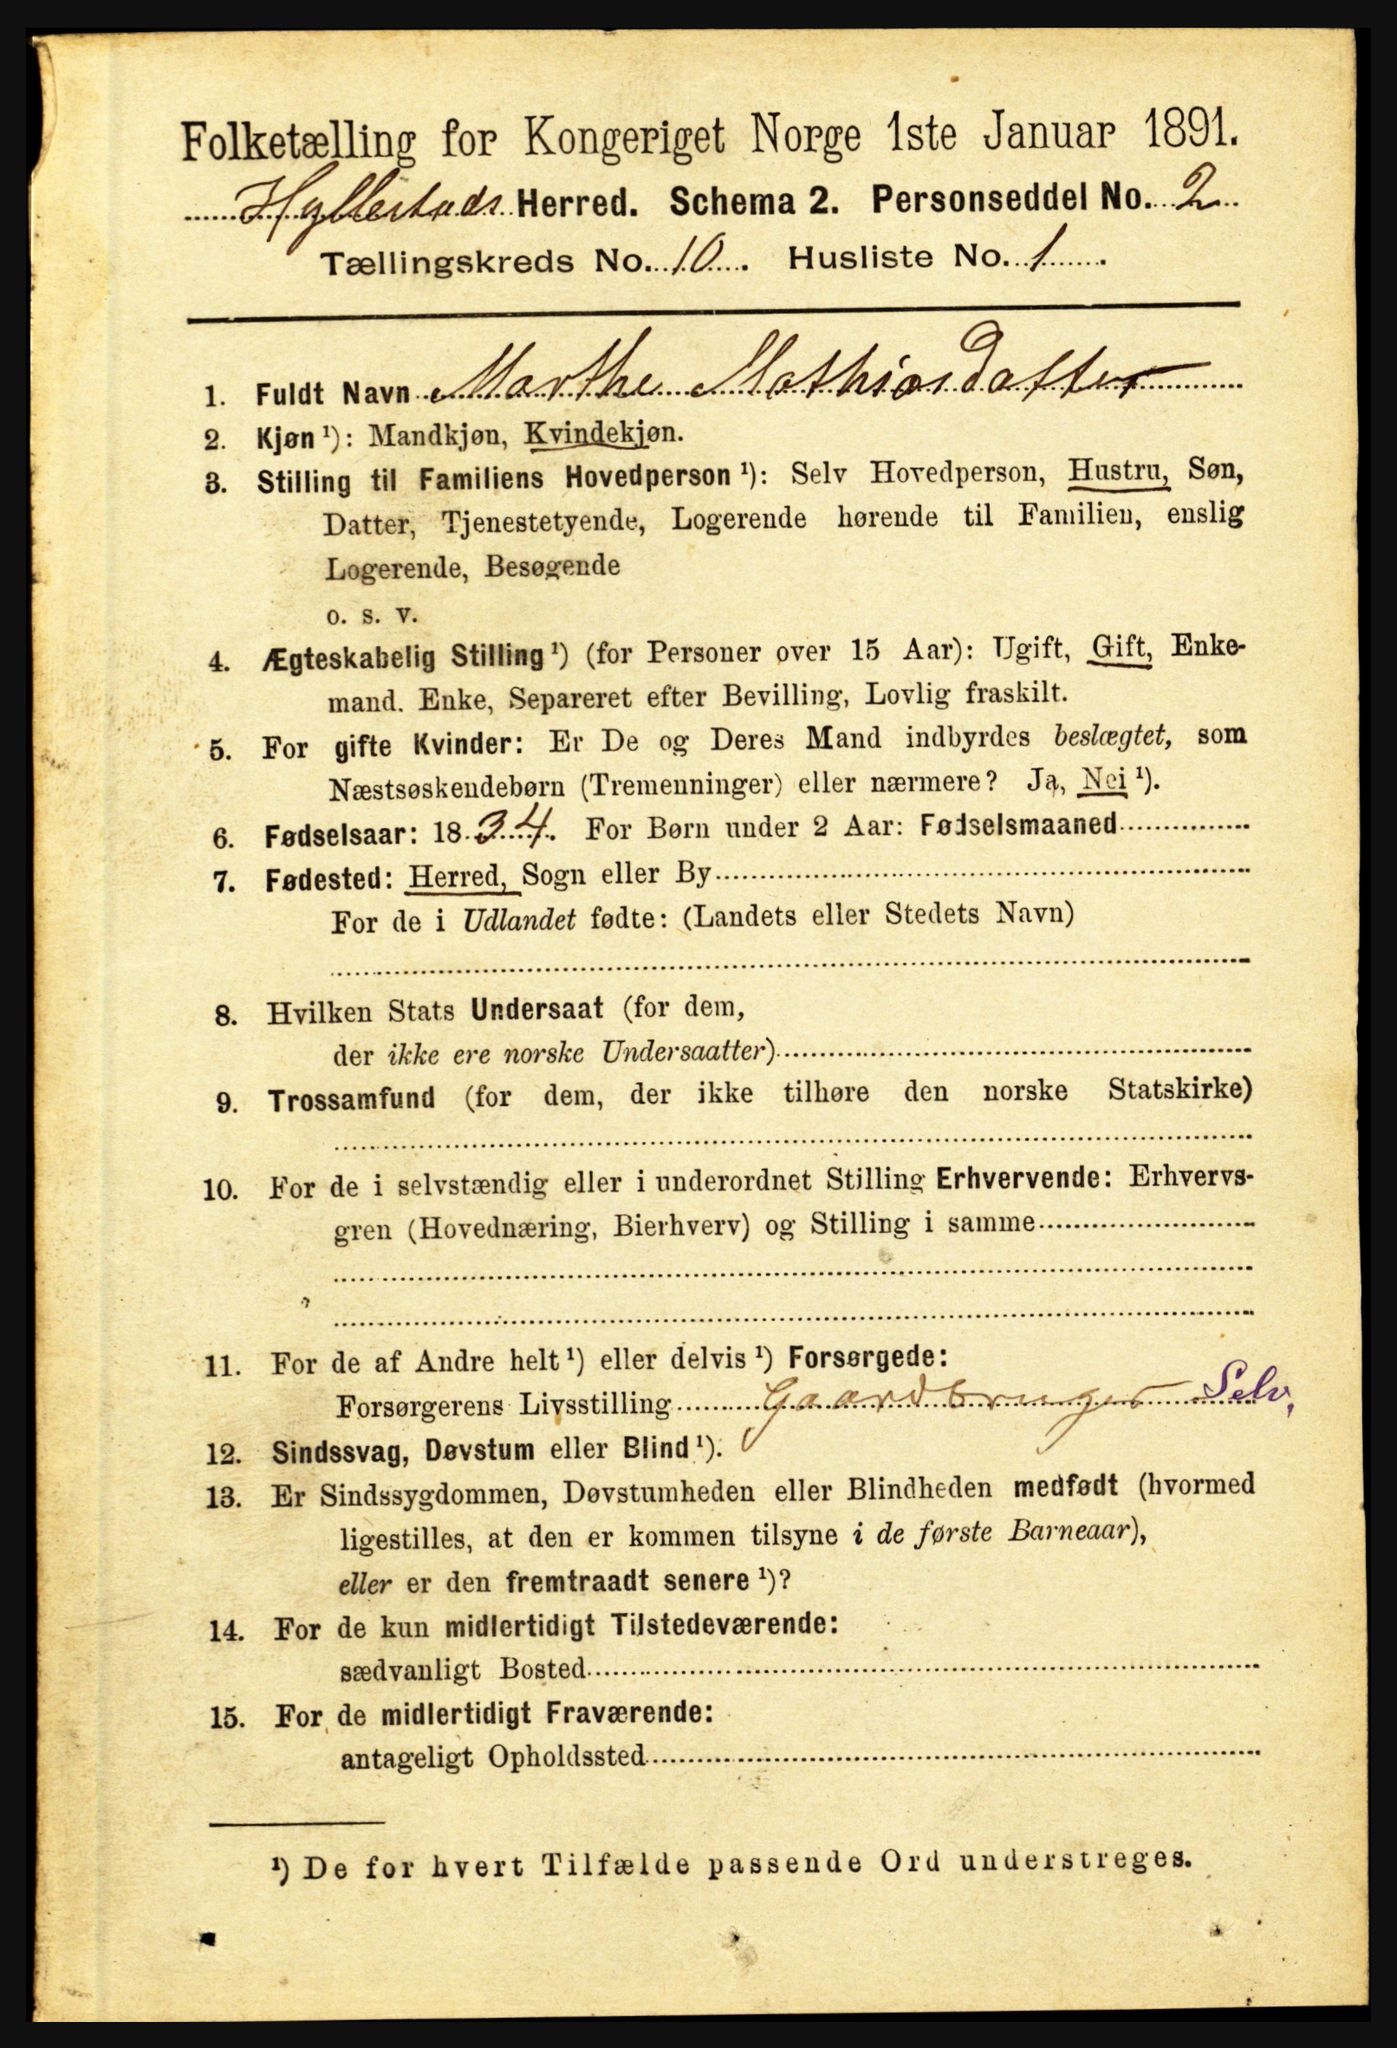 Folketælling for Kongeriget Norge 1ste Januar 1891.
Hyllestads Herred. Schema 2. Personseddel No. 2
Tællingskreds No. 10. Husliste No. 1
1. Fuldt Navn Marthe Mathiasdatter
2. Kjøn ¹): Mandkjøn, Kvindekjøn.
3. Stilling til Familiens Hovedperson ¹): Selv Hovedperson, Hustru, Søn,
Datter, Tjenestetyende, Logerende hørende til Familien, enslig
Logerende, Besøgende
o. s. v.
4. Ægteskabelig Stilling ¹) (for Personer over 15 Aar): Ugift, Gift, Enke-
mand. Enke, Separeret efter Bevilling, Lovlig fraskilt.
5. For gifte Kvinder: Er De og Deres Mand indbyrdes beslægtet, som
Næstsøskendebørn (Tremenninger) eller nærmere? Ja, Nei ¹).
6. Fødselsaar: 1834. For Børn under 2 Aar: Fødselsmaaned
7. Fødested: Herred, Sogn eller By
For de i Udlandet fødte: (Landets eller Stedets Navn)
8. Hvilken Stats Undersaat (for dem,
der ikke ere norske Undersaatter)
9. Trossamfund (for dem, der ikke tilhøre den norske Statskirke)
10. For de i selvstændig eller i underordnet Stilling Erhvervende: Erhvervs-
gren (Hovednæring, Bierhverv) og Stilling i samme
11. For de af Andre helt ¹) eller delvis ¹) Forsørgede:
Forsørgerens Livsstilling Gaardbruger Selv,
12. Sindssvag, Døvstum eller Blind ¹).
13. Er Sindssygdommen, Døvstumheden eller Blindheden medfødt (hvormed
ligestilles, at den er kommen tilsyne i de første Barneaar),
eller er den fremtraadt senere ¹)?
14. For de kun midlertidigt Tilstedeværende:
sædvanligt Bosted
15. For de midlertidigt Fraværende:
antageligt Opholdssted
¹) De for hvert Tilfælde passende Ord understreges.